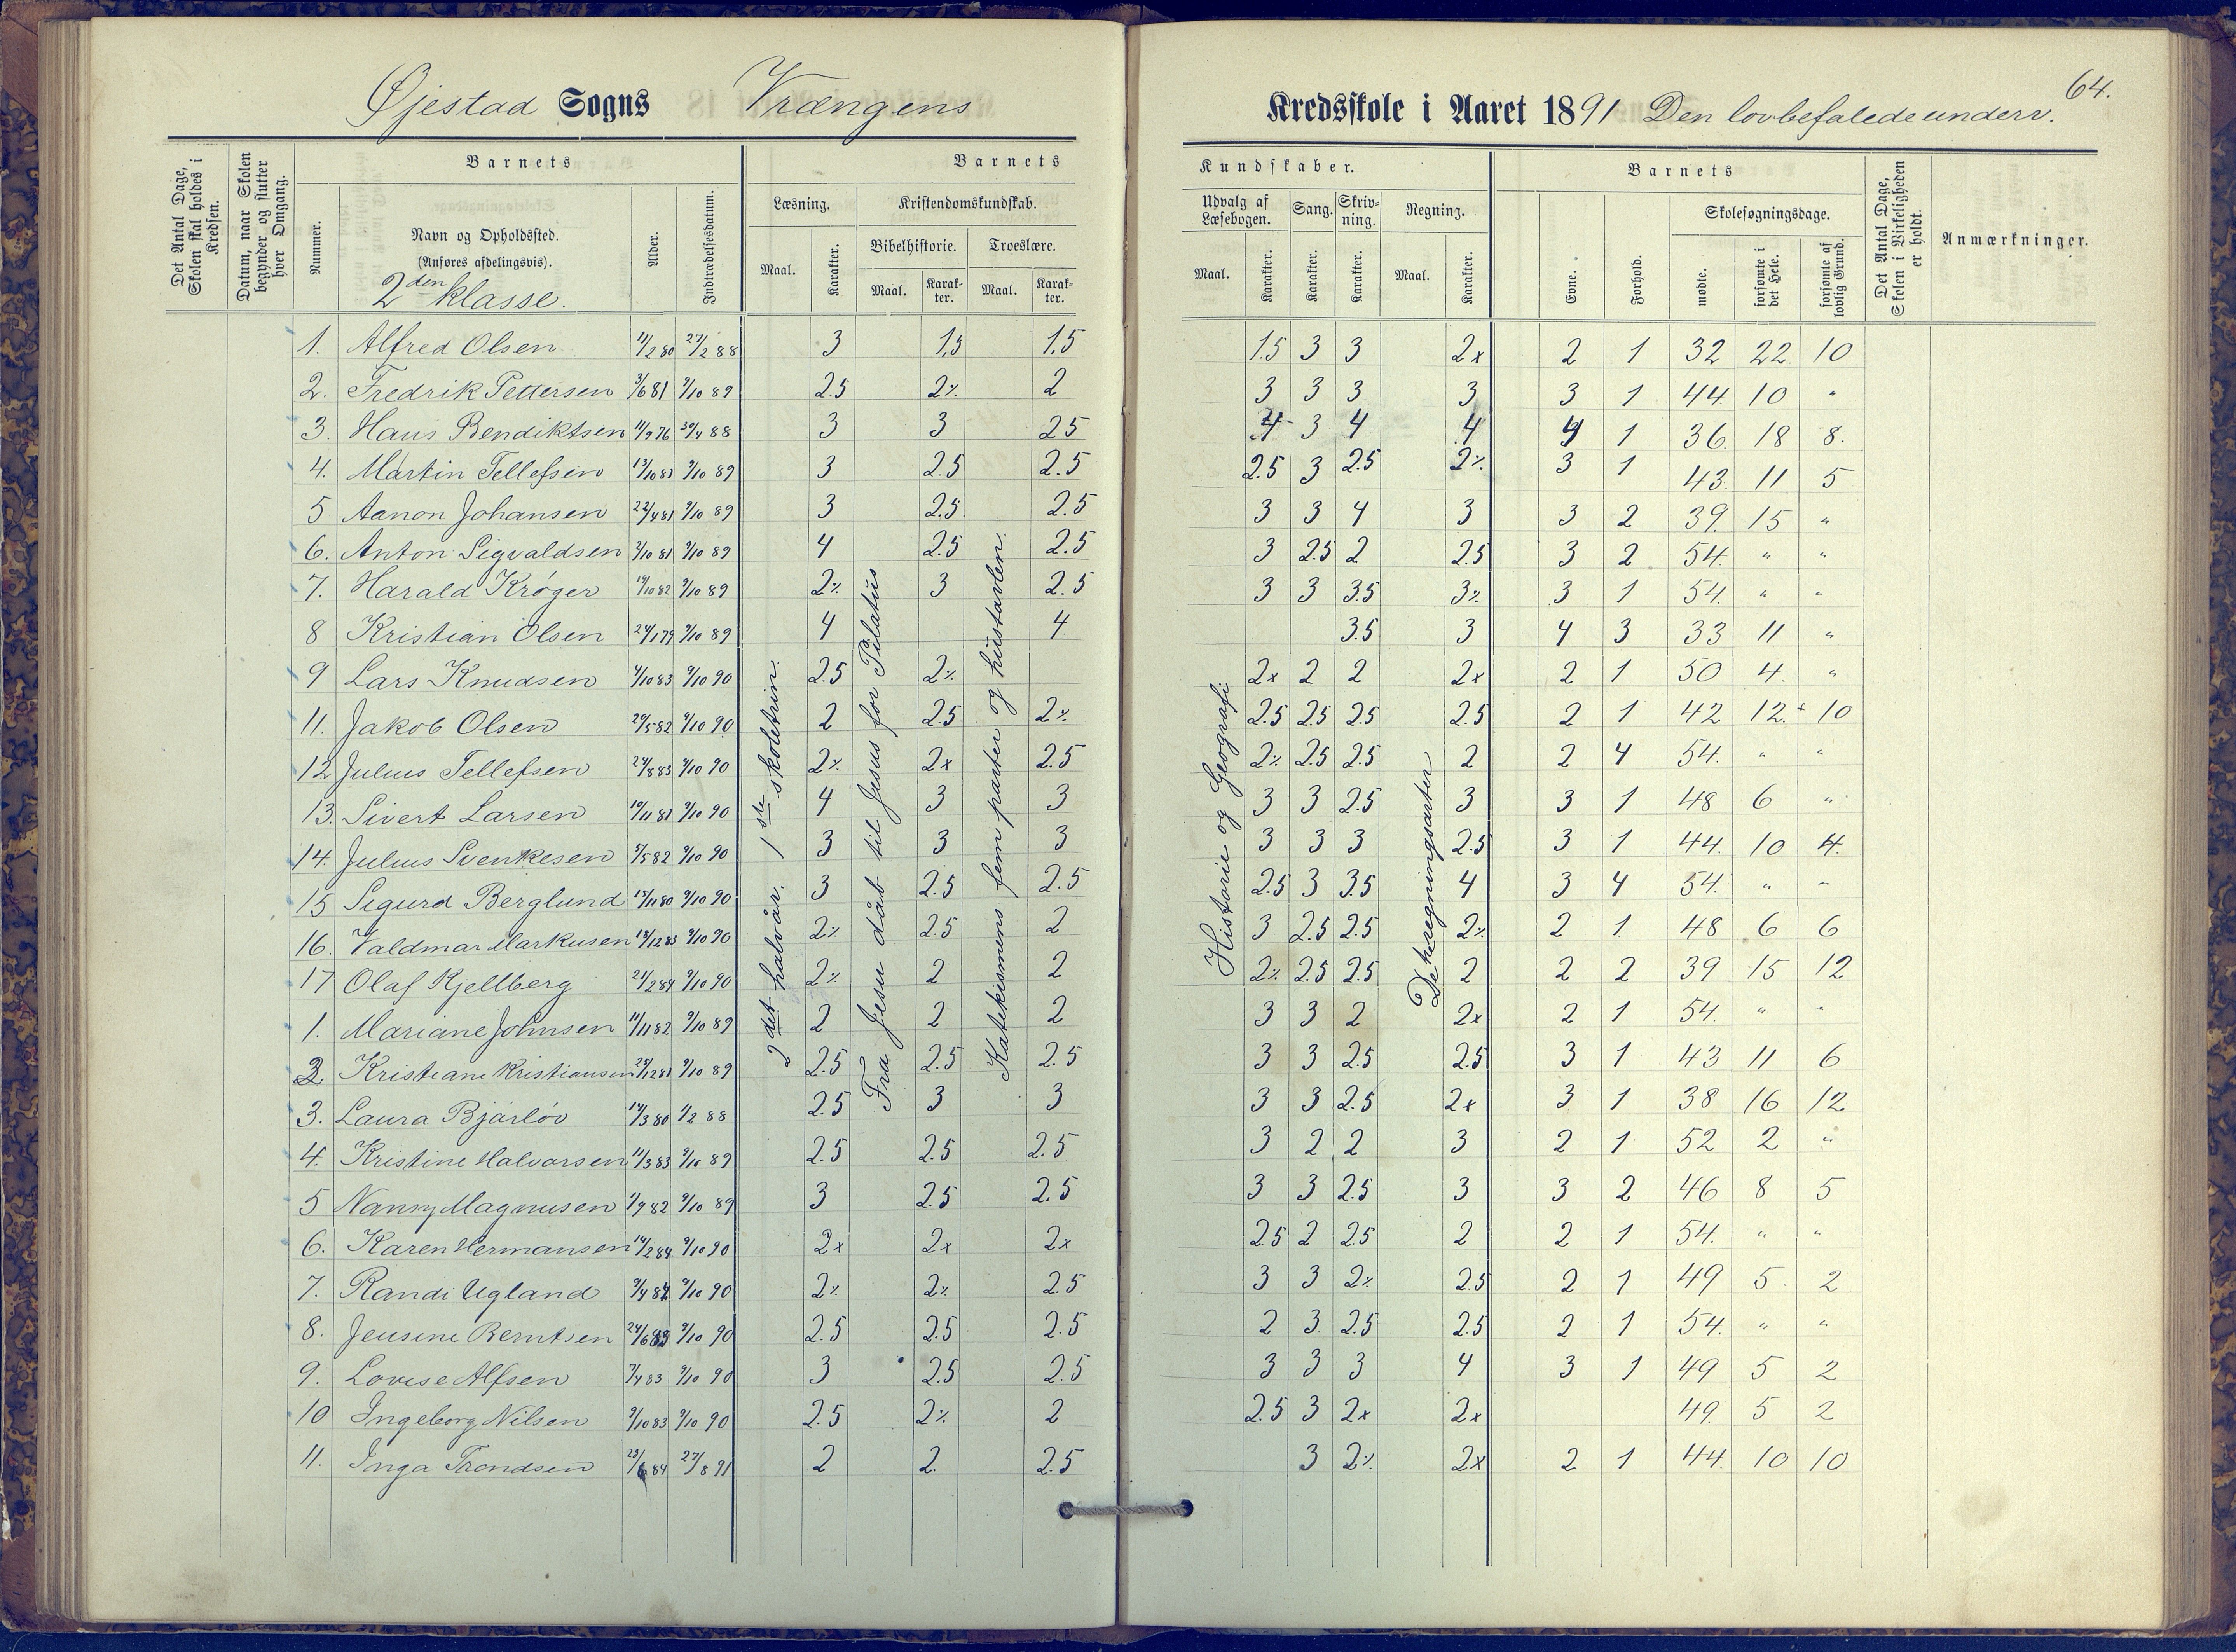 64.
Øjestad Sogns Vrængens Kredsskole i Aaret 1891 Den lovbefalede underv.
Det Antal Dage, Skolen skal holdes i Kredsen.
Datum, naar Skolen begynder og slutter hver Omgang.
Barnets
Nummer.
Navn og Opholdssted.
(Anføres afdelingsvis).
2den klasse.
Alder.
Indtrædelsesdatum.
Barnets Kundskaber.
Læsning.
Maal.
Karakter.
Kristendomskundskab.
Bibelhistorie.
Maal.
Karakter.
Troeslære.
Maal.
Karakter.
Udvalg af Læsebogen.
Maal.
Karakter.
Sang.
Karakter.
Skrivning.
Karakter.
Regning.
Maal.
Karakter.
Barnets
Evne.
Forhold.
Skolesøgningsdage.
mødte.
forsømte i det Hele.
forsømte af lovlig Grund.
Det Antal Dage, Skolen i Virkeligheden er holdt.
Anmærkninger.
2det halvår. 1ste skoletrin.
Fra Jesu dåb til Jesus for Pilatus
Katekismens fem parter og hustavlen.
Historie og Geografi
De 4 regningsarter
1. Alfred Olsen 11/2 80 27/2 88 3 1,5 1,5 1.5 3 3 2x 2 1 32 22 10
2. Fredrik Pettersen 3/6 81 9/10 89 2.5 2% 2 3 3 3 3 3 1 44 10 "
3. Hans Bendiktsen 11/9 76 30/4 88 3 3 2.5 4 3 4 4 4 1 36 18 8.
4. Martin Tellefsen 13/10 81 9/10 89 3 2.5 2.5 2.5 3 2.5 2% 3 1 43 11 5
5 Aanon Johansen 22/4 81 9/10 89 3 2.5 2.5 3 3 4 3 3 2 39 15 "
6. Anton Sigvaldsen 2/10 81 9/10 89 4 2.5 2.5 3 2.5 2 2.5 3 2 54. " "
7. Harald Krøger 19/10 82 9/10 89 2% 3 2.5 3 3 3.5 3% 3 1 54. " "
8 Kristian Olsen 24/1 79 9/10 89 4 4 3.5 3 4 3 33 11 "
9 Lars Knudsen 4/10 83 9/10 90 2.5 2% 2x 2 2 2x 2 1 50 4. "
11. Jakob Olsen 20/5 82 9/10 90 2 2.5 2% 2.5 2.5 2.5 2.5 2 1 42 12. 10
12 Julius Tellefsen 24/8 83 9/10 90 2% 2x 2.5 2% 2.5 2.5 2 2 4 54. " "
13. Sivert Larsen 10/11 81 9/10 90 4 3 3 3 3 2.5 3 3 1 48 6 "
14. Julius Svenkesen 5/5 82 9/10 90 3 3 3 3 3 3 2.5 3 1 44. 10 4.
15 Sigurd Berglund 15/11 80 9/10 90 3 2.5 2.5 2.5 3 3.5 4 3 4 54. " "
16. Valdmar Markusen 18/12 83 9/10 90 2% 2.5 2 3 2.5 2.5 2% 2 1 48 6 6
17 Olaf Kjellberg 21/2 84 9/10 90 2% 2 2 2% 2.5 2.5 2 2 2 39 15 12
1. Mariane Johnsen 11/11 82 9/10 89 2 2 2 3 3 2 2x 2 1 54. " "
2. Kristiane Kristiansen 25/12 81 9/10 89 2.5 2.5 2.5 3 3 2.5 2.5 3 1 43 11 6
3. Laura Bjårløv 14/3 80 1/2 88 2.5 3 3 3 3 2.5 2x 3 1 38 16 12
4. Kristine Halvorsen 11/3 83 9/10 89 2.5 2.5 2.5 3 2 2 3 2 1 52 2 "
5 Nansy Magnusen 7/9 82 9/10 89 3 2.5 2.5 3 3 2.5 3 3 2 46 8 5
6. Karen Hermansen 14/2 84 9/10 90 2x 2x 2x 2.5 2 2.5 2 2 1 54. " "
7. Randi Ugland 9/4 82 9/10 90 2% 2% 2.5 3 3 2% 2.5 2 1 49 5. 2
8. Jensine Berntsen 24/6 83 9/10 90 2.5 2.5 2.5 2 3 2.5 2.5 2 1 54. " "
9. Lovise Alfsen 7/4 83 9/10 90 3 2.5 2.5 3 3 3 4 3 1 49 5 2
10 Ingeborg Nilsen 9/10 83 9/10 90 2.5 2% 2 2.5 3 2x 2x 49. 5 2
11. Inga Trondsen 23/6 84 27/8 91 2 2. 2.5 3 2% 2x 2 1 44 10 10